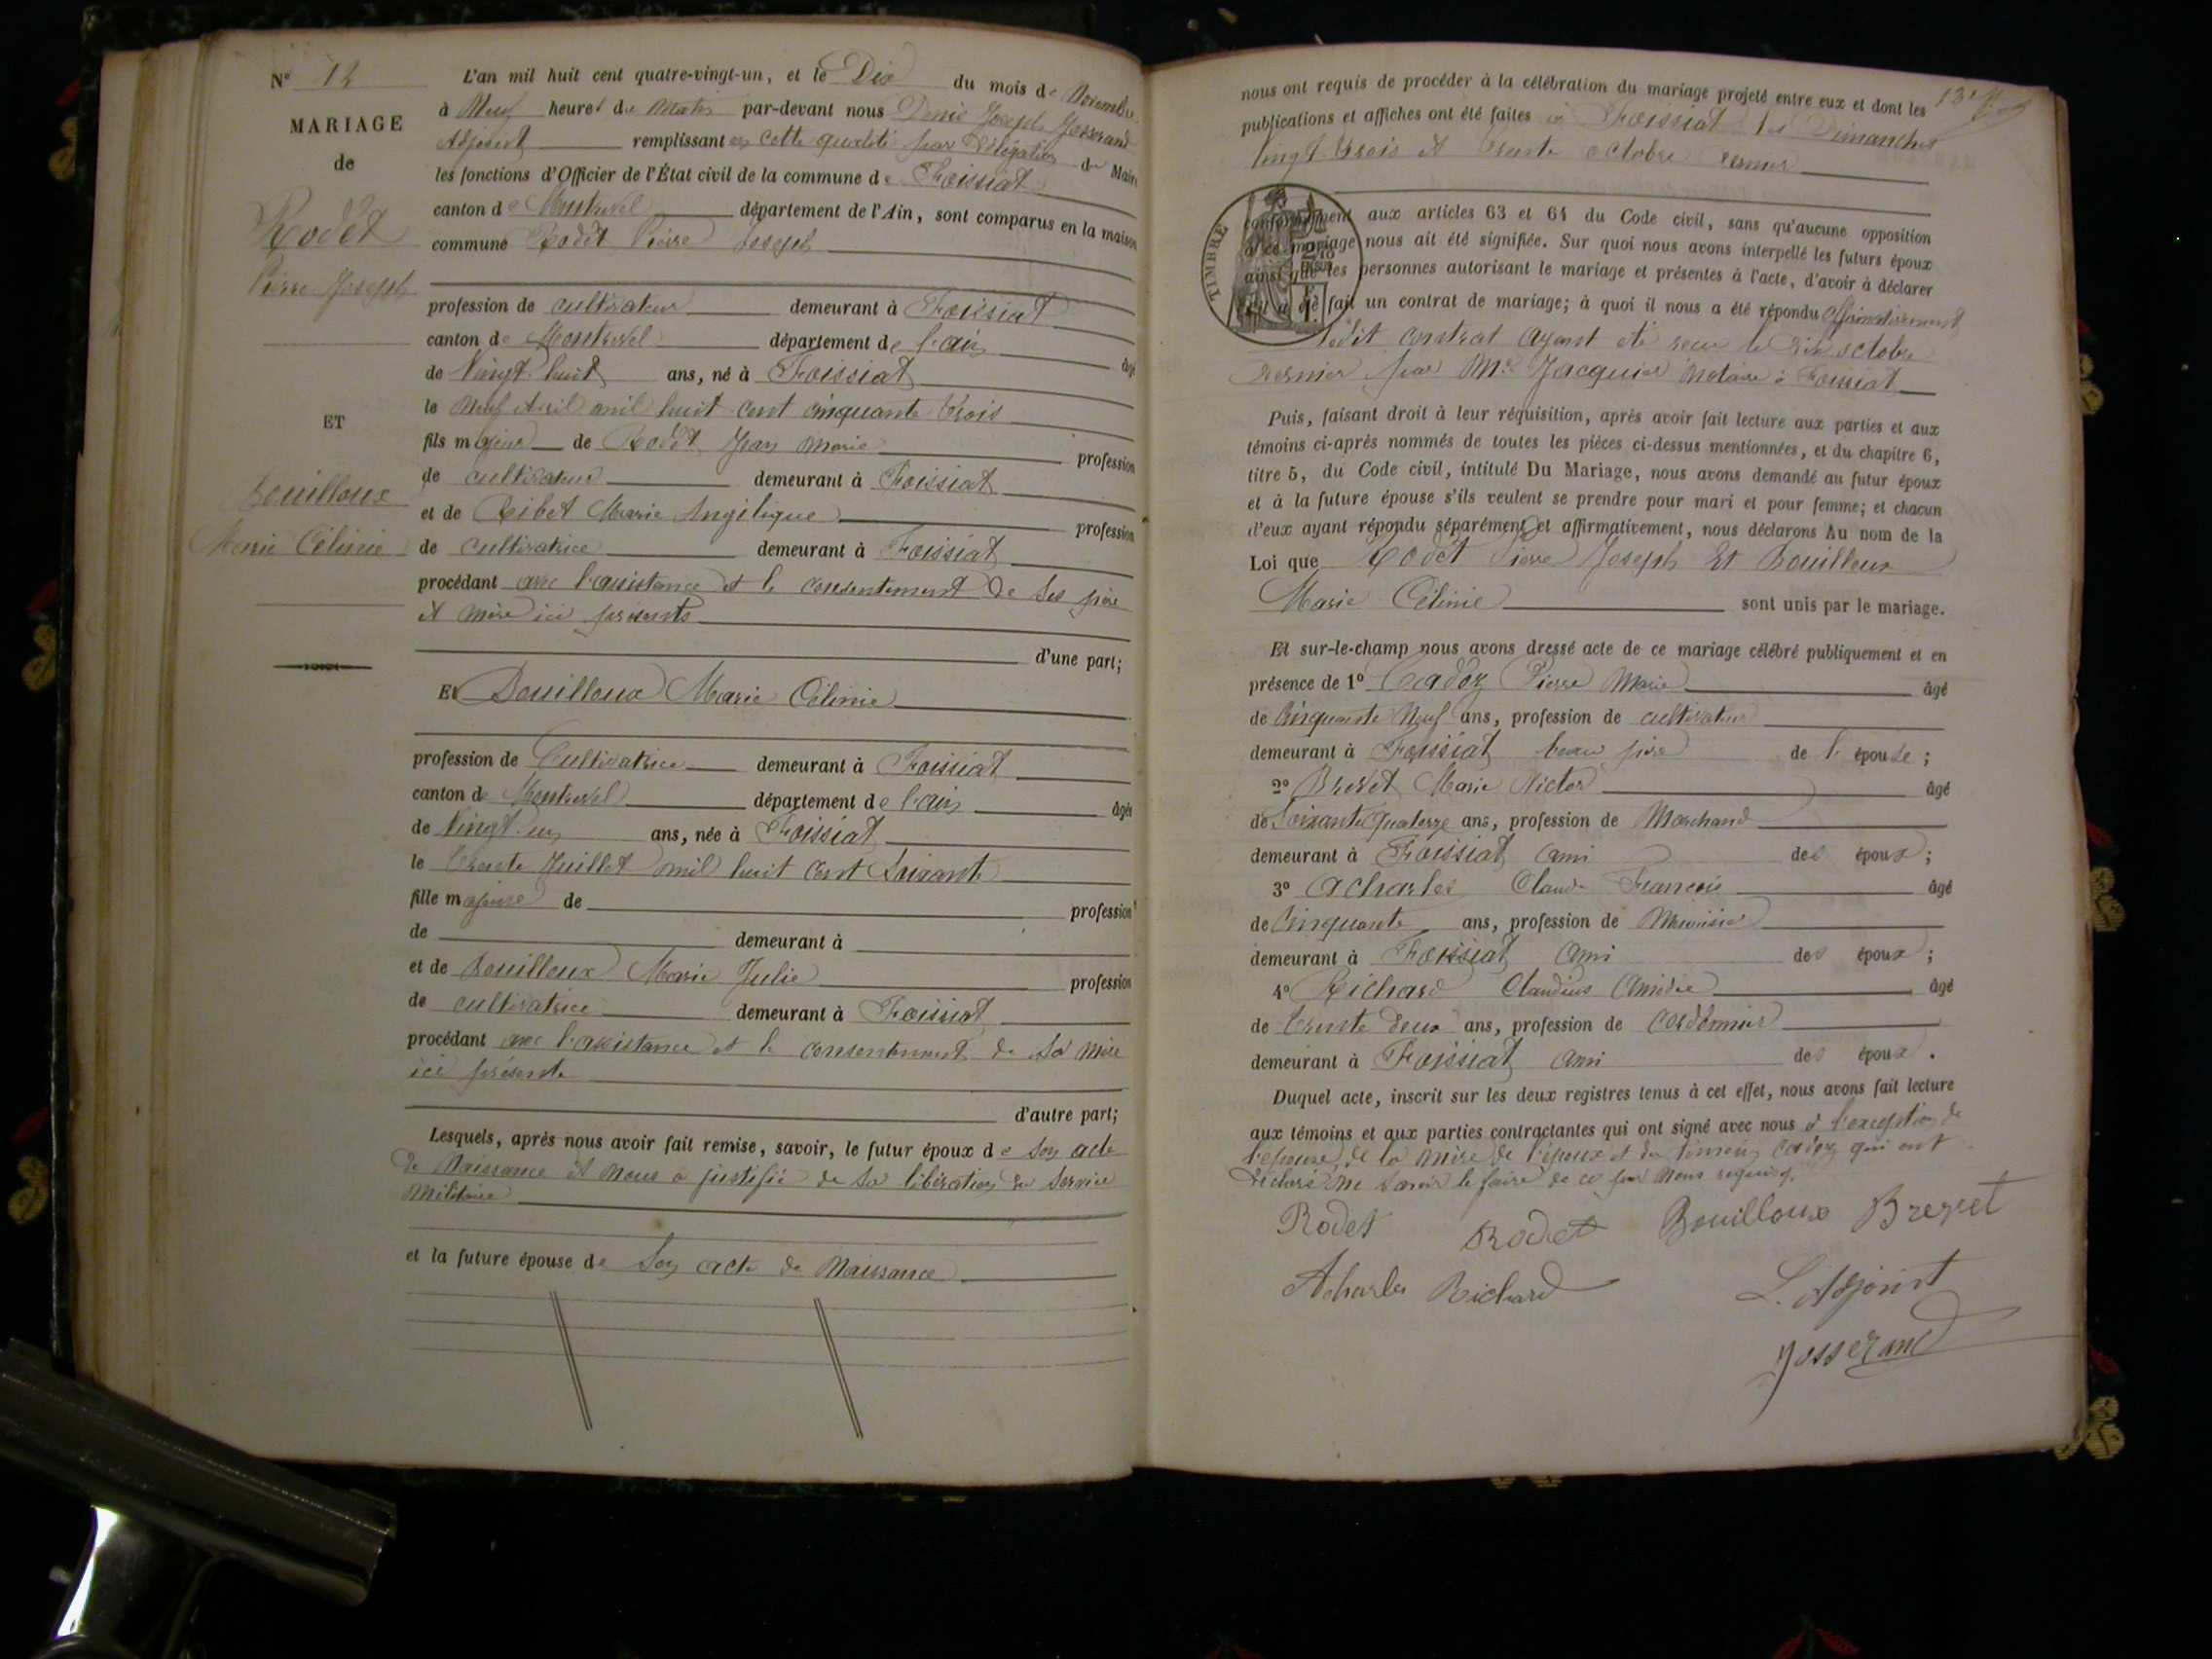 N° 12
MARIAGE
de
Rodet
Pierre Joseph
ET
Bouilloux
Marie Célinie
L'an mil huit cent quatre-vingt-un, et le Dix du mois de Novembre
à Neuf heures du Matin par-devant nous Denis Joseph Josserand
Adjoint remplissant en cette qualité par Délégation du Maire
les fonctions d'Officier de l'État civil de la commune de Foissiat
canton de Montrevel département de l'Ain, sont comparus en la maison
commune Rodet Pierre Joseph
profession de cultivateur demeurant à Foissiat
canton de Montrevel département de l'ain âgé
de Vingt huit ans, né à Foissiat
le Neuf Avril mil huit cent cinquante trois
fils majeur de Rodet Jean Marie profession
de cultivateur demeurant à Foissiat
et de Ribet Marie Angélique profession
de cultivatrice demeurant à Foissiat
procédant avec l'assistance et le consentement de ses père
et mère ici présents
d'une part;
Et Bouilloux Marie Célinie
profession de Cultivatrice demeurant à Foissiat
canton de Montrevel département de l'ain âgée
de Vingt un ans, née à Foissiat
le trente Juillet mil huit cent Soixante
fille majeure de profession
de demeurant à
et de Bouilloux Marie Julie profession
de cultivatrice demeurant à Foissiat
procédant avec l'assistance et le consentement de sa mère
ici présente
d'autre part;
Lesquels, après nous avoir fait remise, savoir, le futur époux de son acte
de Naissance et nous a justifié de sa libération du service
militaire
et la future épouse de son acte de Naissance
nous ont requis de procéder à la célébration du mariage projeté entre eux et dont les
publications et affiches ont été faites à Foissiat les Dimanches
Vingt trois et trente octobre dernier
TIMBRE
conformément aux articles 63 et 64 du Code civil, sans qu'aucune opposition
à ce mariage nous ait été signifiée. Sur quoi nous avons interpellé les futurs époux
ainsi que les personnes autorisant le mariage et présentes à l'acte, d'avoir à déclarer
s'il a été fait un contrat de mariage; à quoi il nous a été répondu affirmativement
ledit contrat ayant été reçu le dix octobre
dernier par Me Jacquier Notaire à Foissiat
Puis, faisant droit à leur réquisition, après avoir fait lecture aux parties et aux
témoins ci-après nommés de toutes les pièces ci-dessus mentionnées, et du chapitre 6,
titre 5, du Code civil, intitulé Du Mariage, nous avons demandé au futur époux
et à la future épouse s'ils veulent se prendre pour mari et pour femme; et chacun
d'eux ayant répondu séparément et affirmativement, nous déclarons Au nom de la
Loi que Rodet Pierre Joseph Et Bouilloux
Marie Célinie sont unis par le mariage.
Et sur-le-champ nous avons dressé acte de ce mariage célébré publiquement et en
présence de 1° Cadoz Pierre Marie âgé
de Cinquante Neuf ans, profession de cultivateur
demeurant à Foissiat beau père de l'épouse;
2° Brevet Marie Victor âgé
de Soixante quatorze ans, profession de Marchand
demeurant à Foissiat ami des époux;
3° Acharles Claude François âgé
de Cinquante ans, profession de Menuisier
demeurant à Foissiat ami des époux;
4° Richard Claudius Amédée âgé
de trente deux ans, profession de cordonnier
demeurant à Foissiat ami des époux.
Duquel acte, inscrit sur les deux registres tenus à cet effet, nous avons fait lecture
aux témoins et aux parties contractantes qui ont signé avec nous à l'exception de
l'épouse, de la mère de l'époux et du témoin Cadoz qui ont
déclaré ne savoir le faire de ce par nous requis.
Rodet Rodet Bouilloux Brevet
Acharles Richard L. Adjoint
Josserand